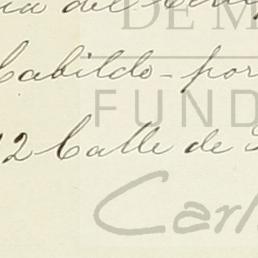 del
DE M
Cabildo - por
FUND
12 Calle de
Carl